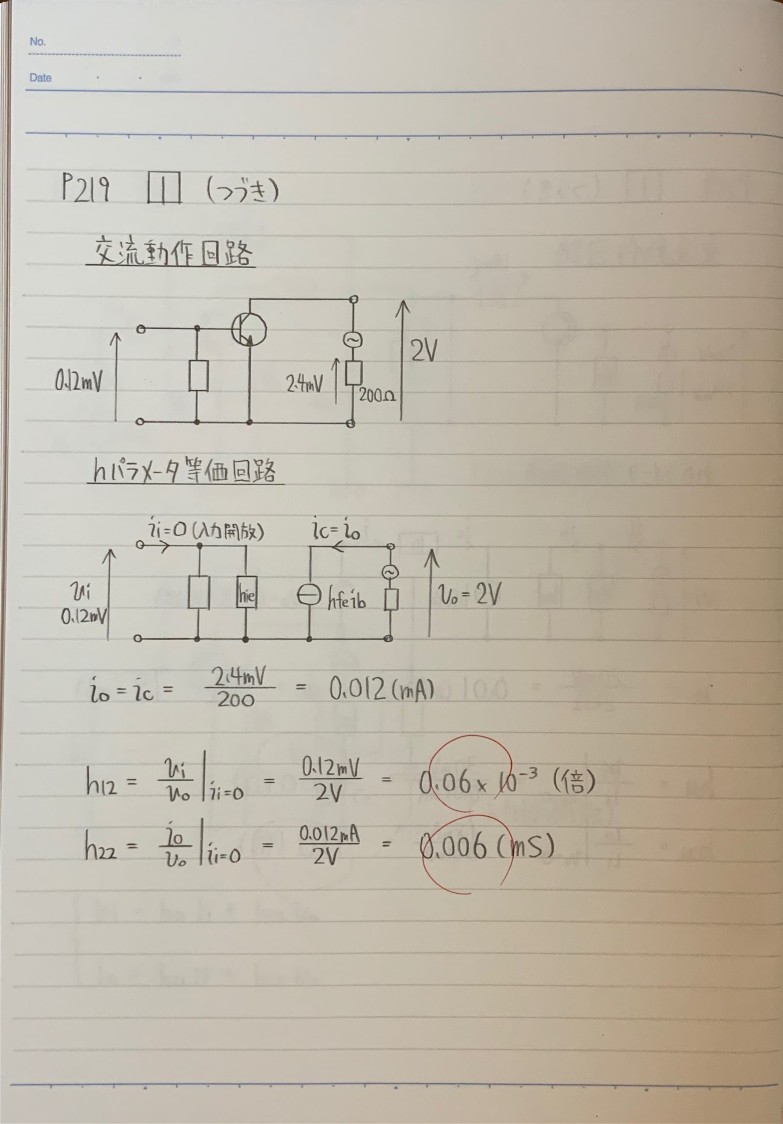 No.
Date
P219 1 (つづき)
交流動作回路
0.12mV
2.4mV
200Ω
2V
hパラメータ等価回路
ii=0(入力開放)
ic=io
vi
0.12mV
hie
hfeib
vo=2V
io = ic = 2.4mV/200 = 0.012(mA)
h12 = vi/vo|ii=0 = 0.12mV/2V = 0.06×10⁻³ (倍)
h22 = io/vo|ii=0 = 0.012mA/2V = 0.006(mS)